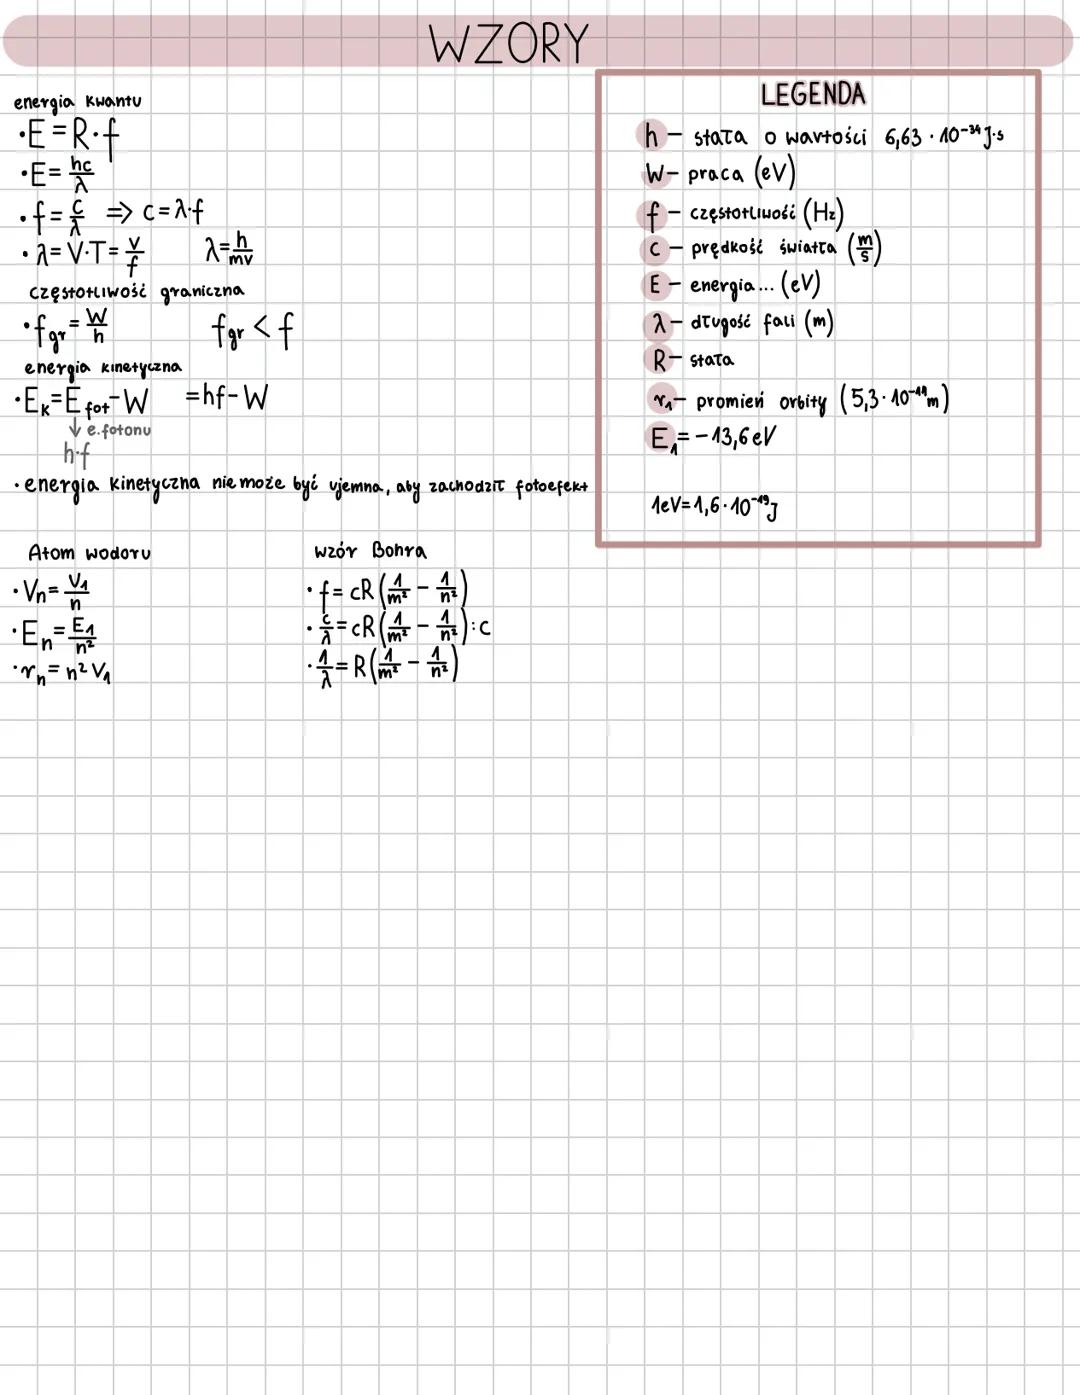 WZORY
energia kwantu
·E=R·f
·E=hc/λ
·f=c/λ => c=λ·f
·λ=V·T=v/f λ=h/mv
częstotliwość graniczna
·fgr=W/h fgr<f
energia kinetyczna
·Ek=Efot-W =hf-W
↓ e.fotonu
h·f
·energia kinetyczna nie może być ujemna, aby zachodził fotoefekt
LEGENDA
h - stała o wartości 6,63·10⁻³⁴J·s
W- praca (eV)
f - częstotliwość (Hz)
c - prędkość światła (m/s)
E - energia... (eV)
λ- długość fali (m)
R- stała
r₁- promień orbity (5,3·10⁻¹¹m)
E₁=-13,6eV
1eV=1,6·10⁻¹⁹J
Atom wodoru
·Vn=V₁/n
·En=E₁/n²
·rn=n²V₁
wzór Bohra
·f=cR(1/m²-1/n²)
·c/λ=cR(1/m²-1/n²):c
·1/λ=R(1/m²-1/n²)